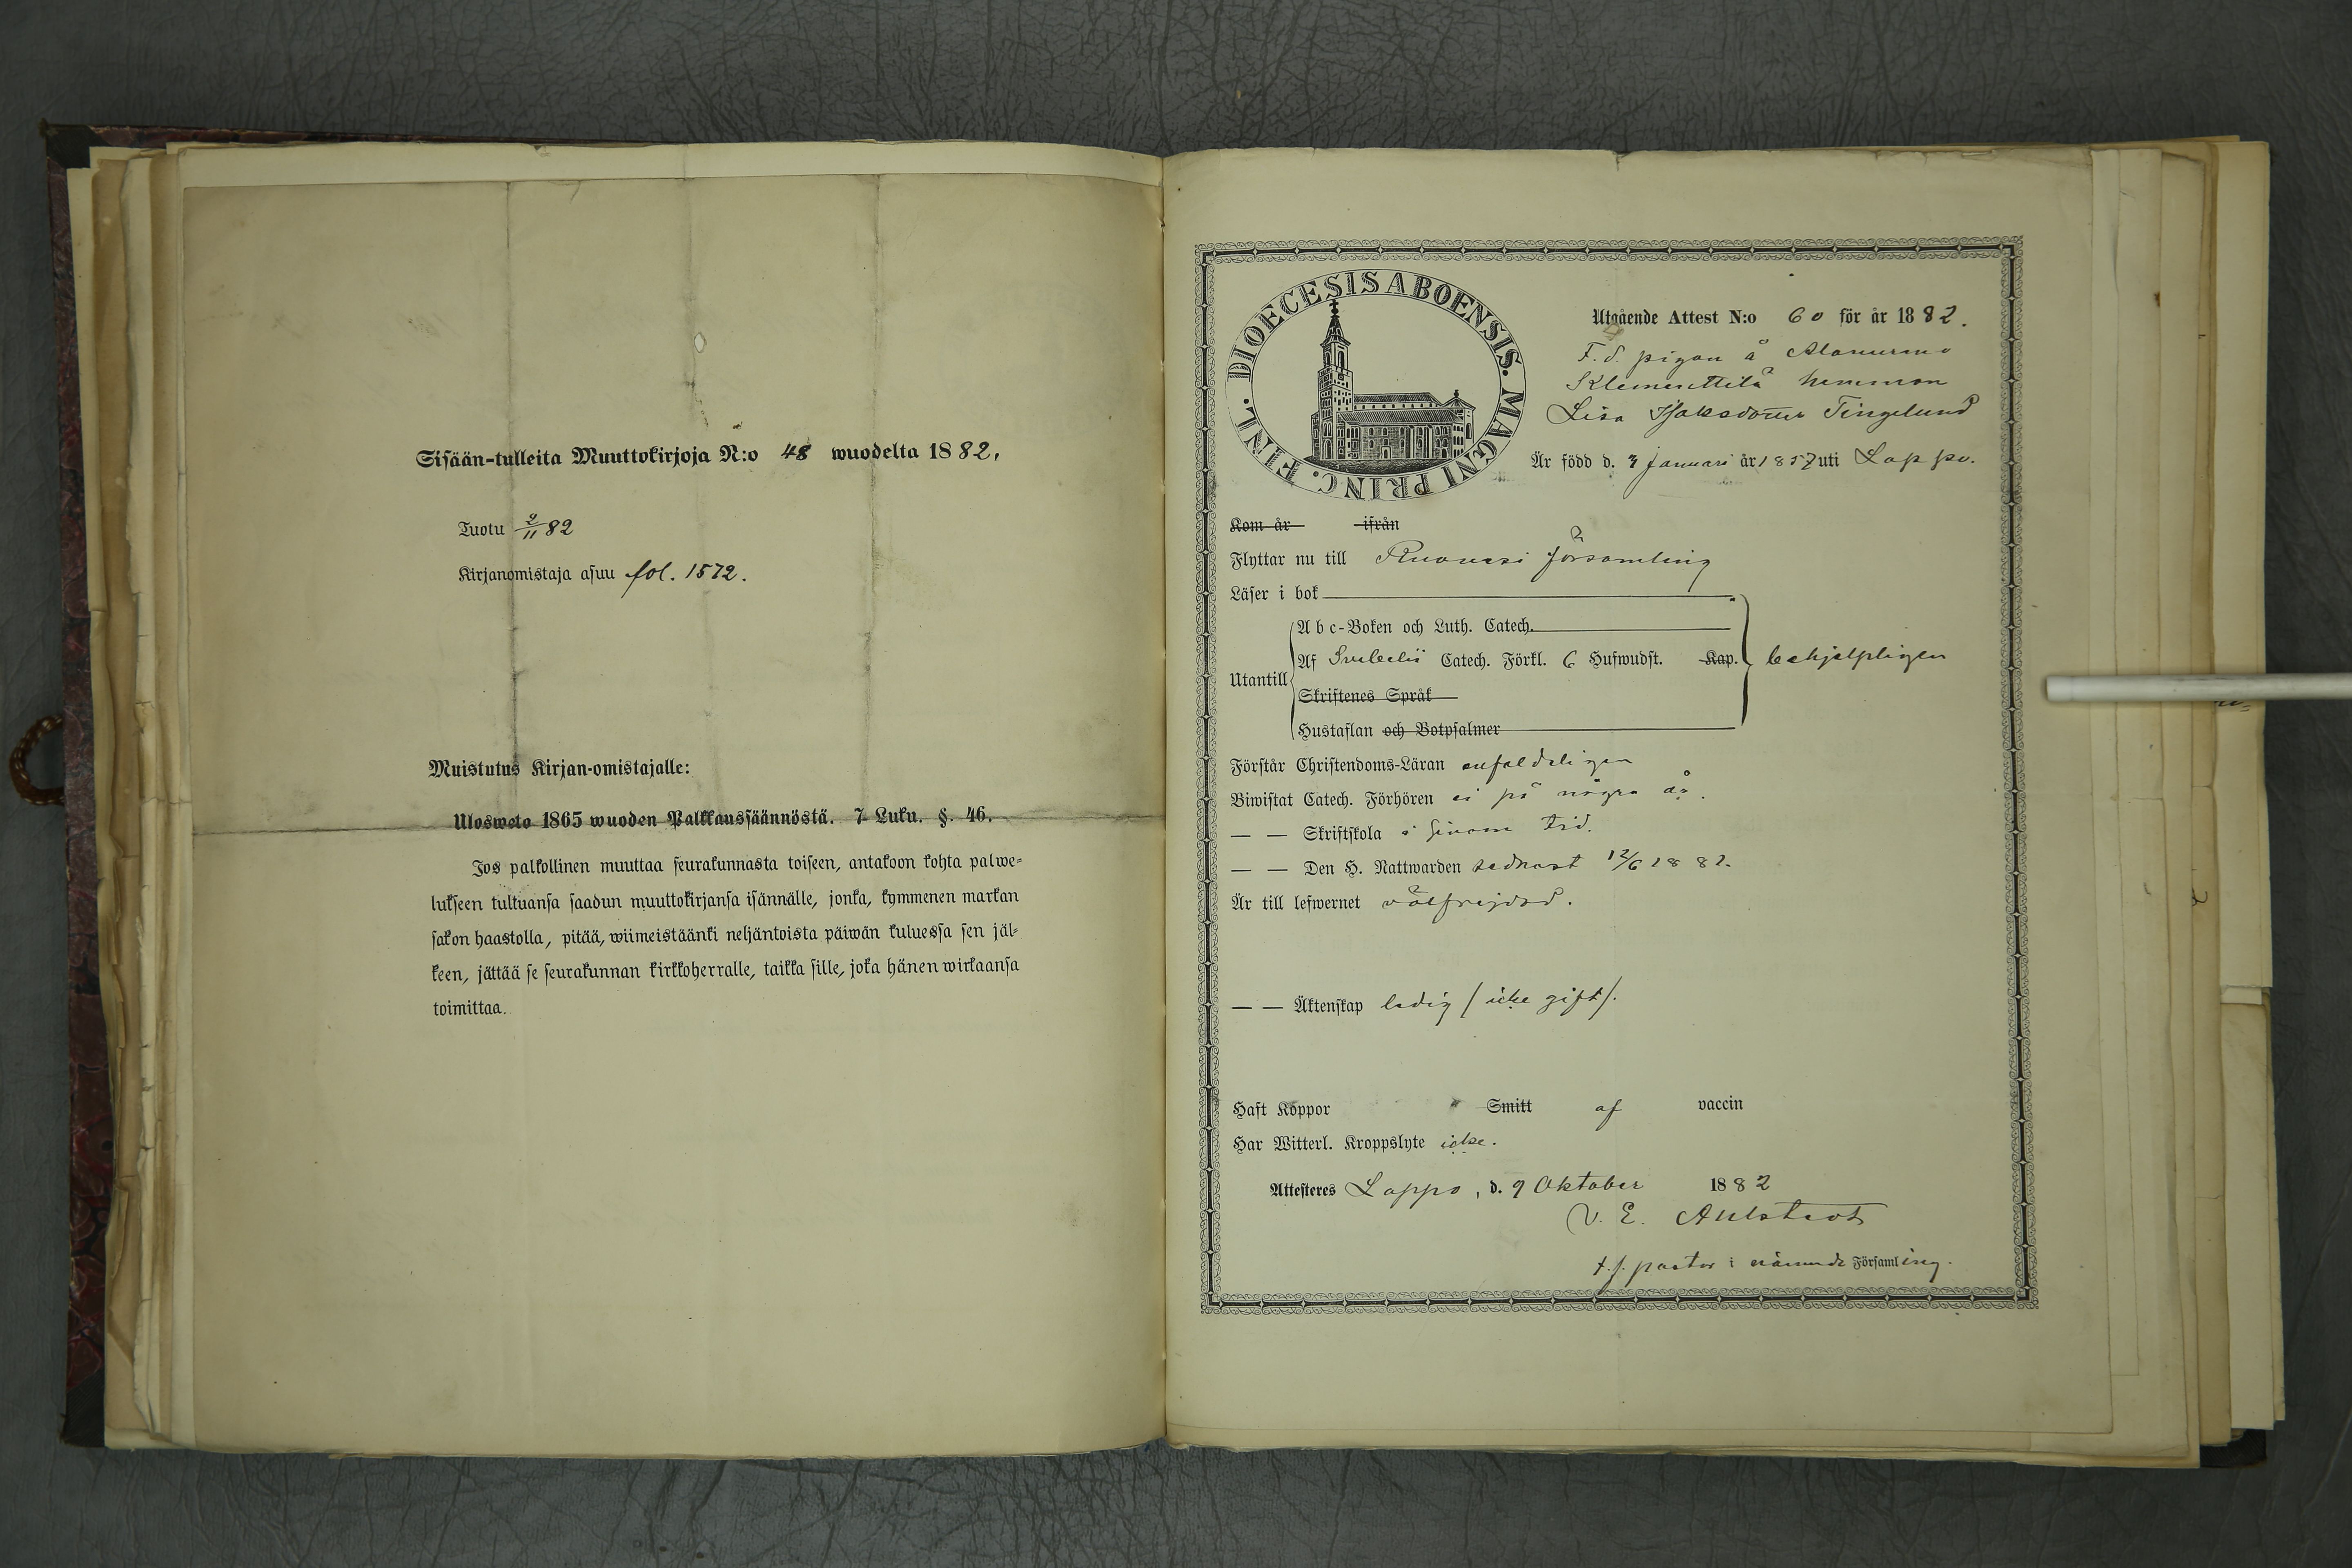 Sisään-tulleita Muuttokirjoja N:o 48 wuodelta 1882.
Tuotu 2/11 82
Kirjanomistaja asuu fol. 1572.
Muistutus Kirjan-omistajalle:
Ulosweto 1865 wuoden Palkkaussäännöstä. 7 Luku. §. 46.
Jos palkollinen muuttaa seurakunnasta toiseen, antakoon kohta palwe-
lukseen tultuansa saadun muuttokirjansa isännälle, jonka, kymmenen markan
sakon haastolla, pitää, wiimeistäänki neljäntoista päiwän kuluessa sen jäl-
keen, jättää se seurakunnan kirkkoherralle, taikka sille, joka hänen wirkaansa
toimittaa.
DIOECESIS ABOENSIS. MAGNI PRINC. FINL.
Utgående Attest N:o 60 för år 1882.
F.d. pigan å Alanurmo
Klemettilä hemman
Lisa Isaksdotter Tingelund
Är född d. 3 Januari år 1857 uti Lappo.
Kom år ifrån
Flyttar nu till Ruovesi församling
Läser i bok
Abc-Boken och Luth. Catech.
Af Svebelii Catech. Förkl. 6 Hufwudst. Kap.
behjelpligen
Utantill
Skriftenes Språk
Hustaflan och Botpsalmer
Förstår Christendoms-Läran enfaldeligen
Biwistat Catech. Förhören ei på några år.
— — Skriftskola i sinom tid.
— — Den H. Nattwarden sednast 12/6 1882.
Är till lefwernet välfrejdad.
— — Äktenskap ledig / icke gift /.
Haft Koppor Smitt af vaccin
Har Witterl. Kroppslyte icke.
Attesteres Lappo, d. 9 Oktober 1882
V. E. Ahlstedt
t.f. pastor i nämnde Församling.